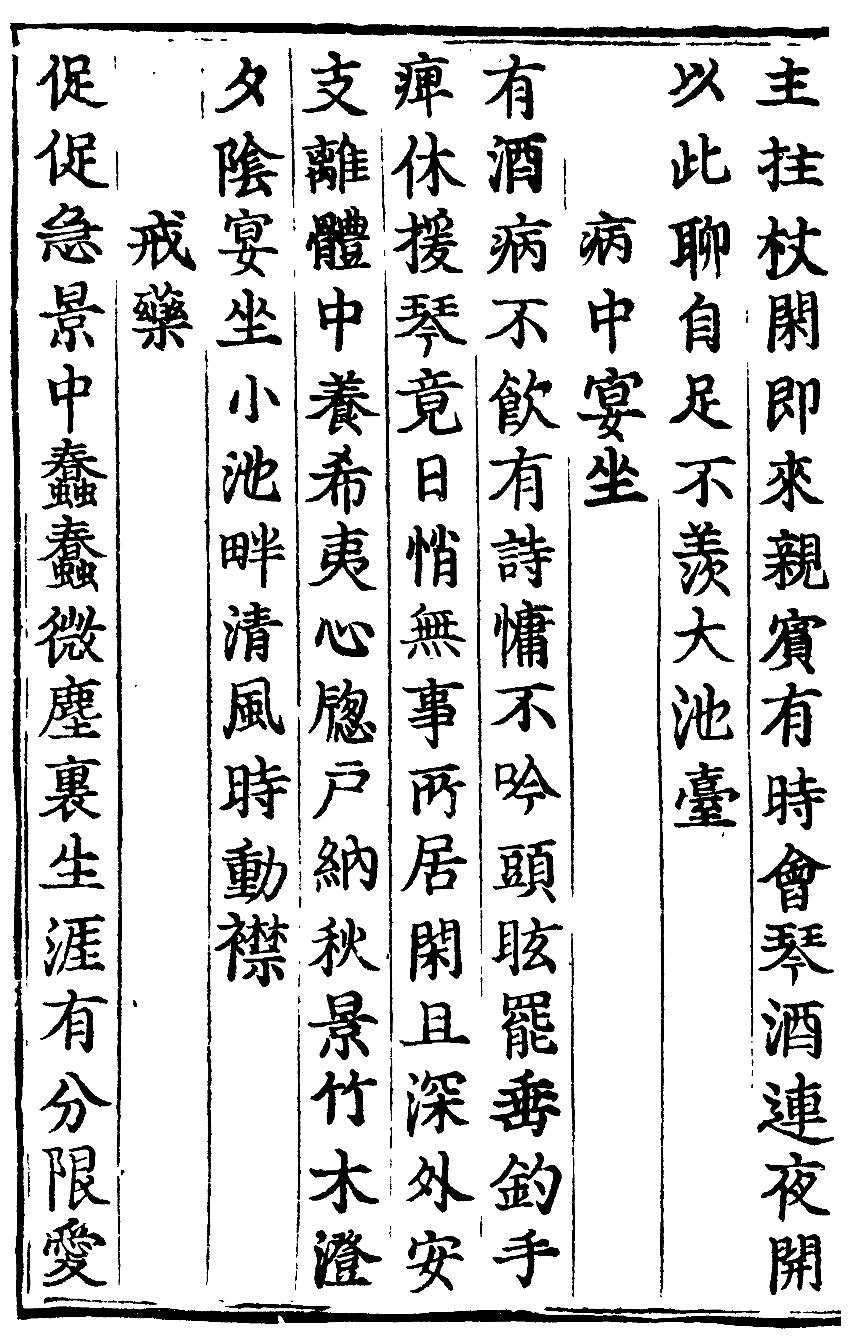 主拄杖閑即來親賓有時會琴酒連夜開
以此聊自足不羨大池臺
病中宴坐
有酒病不飲有詩慵不吟頭眩罷垂釣手
痺休援琴竟日悄無事所居閑且深外安
支離體中養希夷心牎戸納秋景竹木澄
夕陰宴坐小池畔清風時動襟
戒藥
促促急景中蠢蠢微塵裏生涯有分限愛